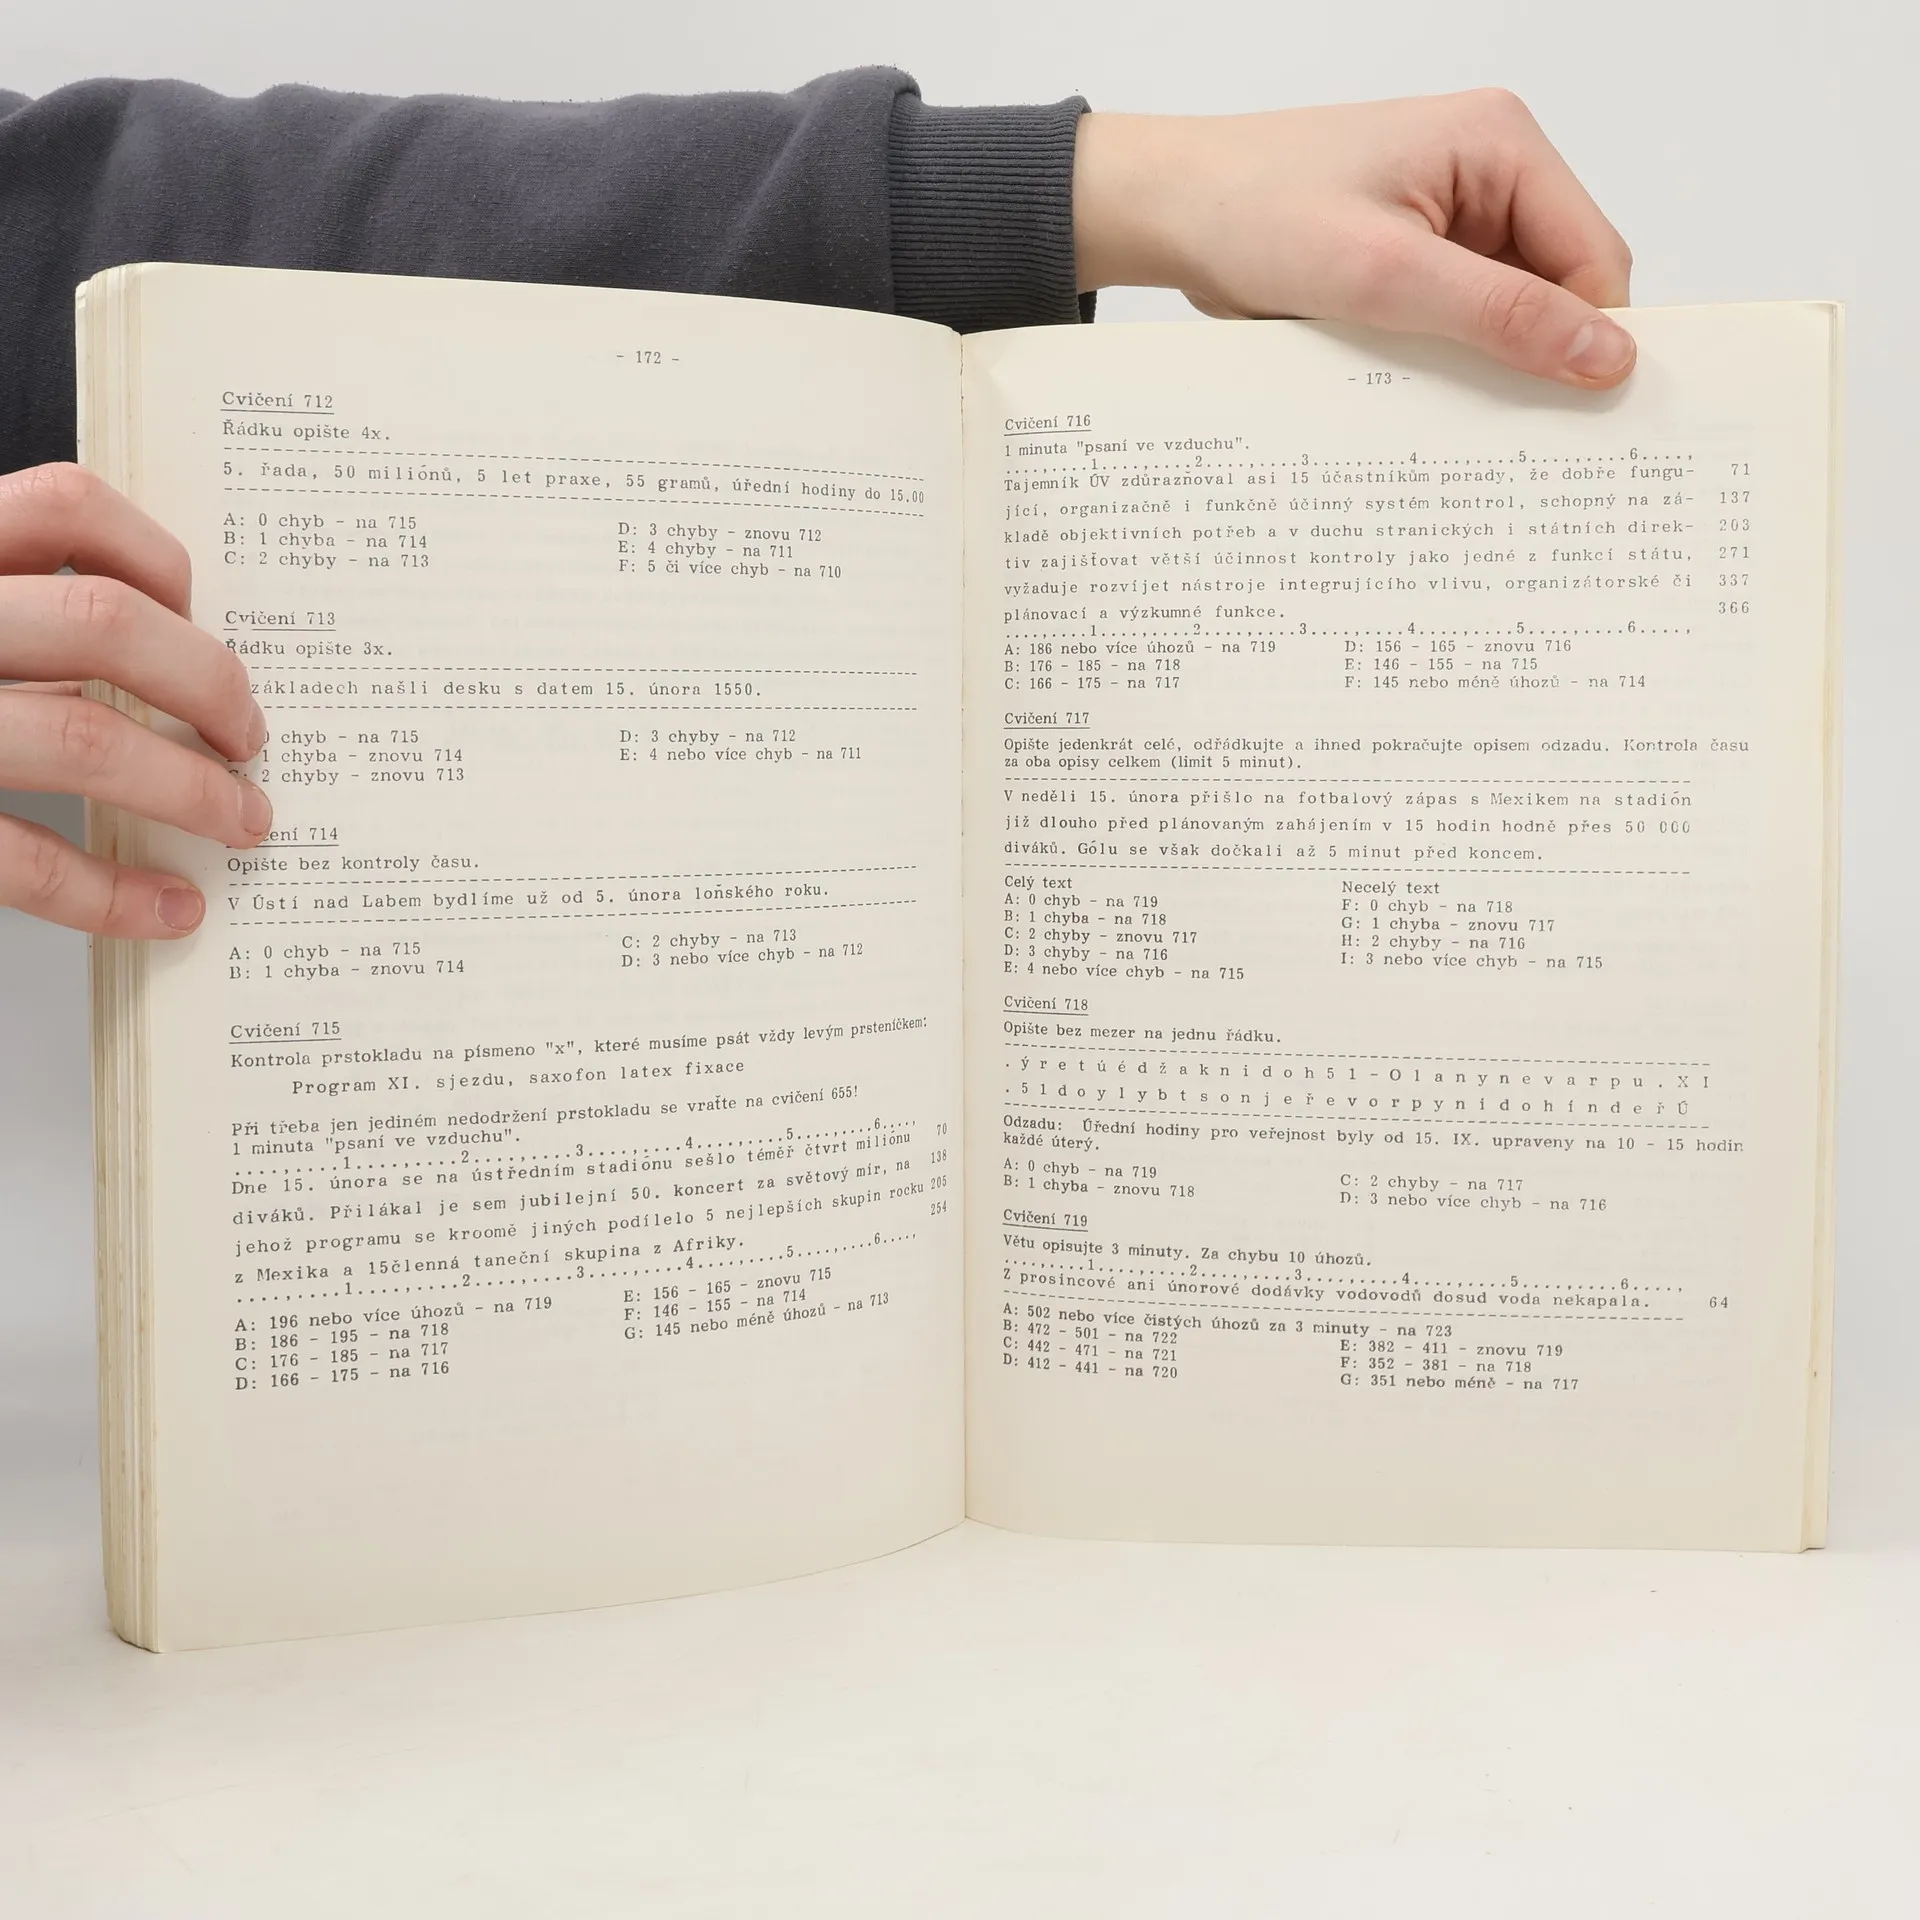 - 172 -
Cvičení 712
Řádku opište 4x.
5. řada, 50 miliónů, 5 let praxe, 55 gramů, úřední hodiny do 15.00
A: 0 chyb - na 715
B: 1 chyba - na 714
C: 2 chyby - na 713
D: 3 chyby - znovu 712
E: 4 chyby - na 711
F: 5 či více chyb - na 710
Cvičení 713
Řádku opište 3x.
základech našli desku s datem 15. února 1550.
chyb - na 715
1 chyba - znovu 714
2 chyby - znovu 713
D: 3 chyby - na 712
E: 4 nebo více chyb - na 711
714
Opište bez kontroly času.
V Ústí nad Labem bydlíme už od 5. února loňského roku.
A: 0 chyb - na 715
B: 1 chyba - znovu 714
C: 2 chyby - na 713
D: 3 nebo více chyb - na 712
Cvičení 715
Kontrola prstokladu na písmeno "x", které musíme psát vždy levým prsteníčkem:
Program XI. sjezdu, saxofon latex fixace
Při třeba jen jediném nedodržení prstokladu se vraťte na cvičení 655!
1 minuta "psaní ve vzduchu".
....,....1....,....2....,....3....,....4....,....5....,....6....,
Dne 15. února se na ústředním stadiónu sešlo téměř čtvrt miliónu 70
diváků. Přilákal je sem jubilejní 50. koncert za světový mír, na 138
jehož programu se kroomě jiných podílelo 5 nejlepších skupin rocku 205
z Mexika a 15členná taneční skupina z Afriky. 254
....,....1....,....2....,....3....,....4....,....5....,....6....,
A: 196 nebo více úhozů - na 719
B: 186 - 195 - na 718
C: 176 - 185 - na 717
D: 166 - 175 - na 716
E: 156 - 165 - znovu 715
F: 146 - 155 - na 714
G: 145 nebo méně úhozů - na 713
- 173 -
Cvičení 716
1 minuta "psaní ve vzduchu".
....,....1....,....2....,....3....,....4....,....5....,....6....,
Tajemník ÚV zdůrazňoval asi 15 účastníkům porady, že dobře fungu- 71
jící, organizačně i funkčně účinný systém kontrol, schopný na zá- 137
kladě objektivních potřeb a v duchu stranických i státních direk- 203
tiv zajišťovat větší účinnost kontroly jako jedné z funkcí státu, 271
vyžaduje rozvíjet nástroje integrujícího vlivu, organizátorské či 337
plánovací a výzkumné funkce. 366
....,....1....,....2....,....3....,....4....,....5....,....6....,
A: 186 nebo více úhozů - na 719
B: 176 - 185 - na 718
C: 166 - 175 - na 717
D: 156 - 165 - znovu 716
E: 146 - 155 - na 715
F: 145 nebo méně úhozů - na 714
Cvičení 717
Opište jedenkrát celé, odřádkujte a ihned pokračujte opisem odzadu. Kontrola času
za oba opisy celkem (limit 5 minut).
V neděli 15. února přišlo na fotbalový zápas s Mexikem na stadión
již dlouho před plánovaným zahájením v 15 hodin hodně přes 50 000
diváků. Gólu se však dočkali až 5 minut před koncem.
Celý text
A: 0 chyb - na 719
B: 1 chyba - na 718
C: 2 chyby - znovu 717
D: 3 chyby - na 716
E: 4 nebo více chyb - na 715
Necelý text
F: 0 chyb - na 718
G: 1 chyba - znovu 717
H: 2 chyby - na 716
I: 3 nebo více chyb - na 715
Cvičení 718
Opište bez mezer na jednu řádku.
. ý r e t ú é d ž a k n i d o h 5 1 - 0 1 a n y n e v a r p u . X I
. 5 1 d o y l y b t s o n j e ř e v o r p y n i d o h í n d e ř Ú
Odzadu: Úřední hodiny pro veřejnost byly od 15. IX. upraveny na 10 - 15 hodin
každé úterý.
A: 0 chyb - na 719
B: 1 chyba - znovu 718
C: 2 chyby - na 717
D: 3 nebo více chyb - na 716
Cvičení 719
Větu opisujte 3 minuty. Za chybu 10 úhozů.
....,....1....,....2....,....3....,....4....,....5....,....6....,
Z prosincové ani únorové dodávky vodovodů dosud voda nekapala. 64
A: 502 nebo více čistých úhozů za 3 minuty - na 723
B: 472 - 501 - na 722
C: 442 - 471 - na 721
D: 412 - 441 - na 720
E: 382 - 411 - znovu 719
F: 352 - 381 - na 718
G: 351 nebo méně - na 717